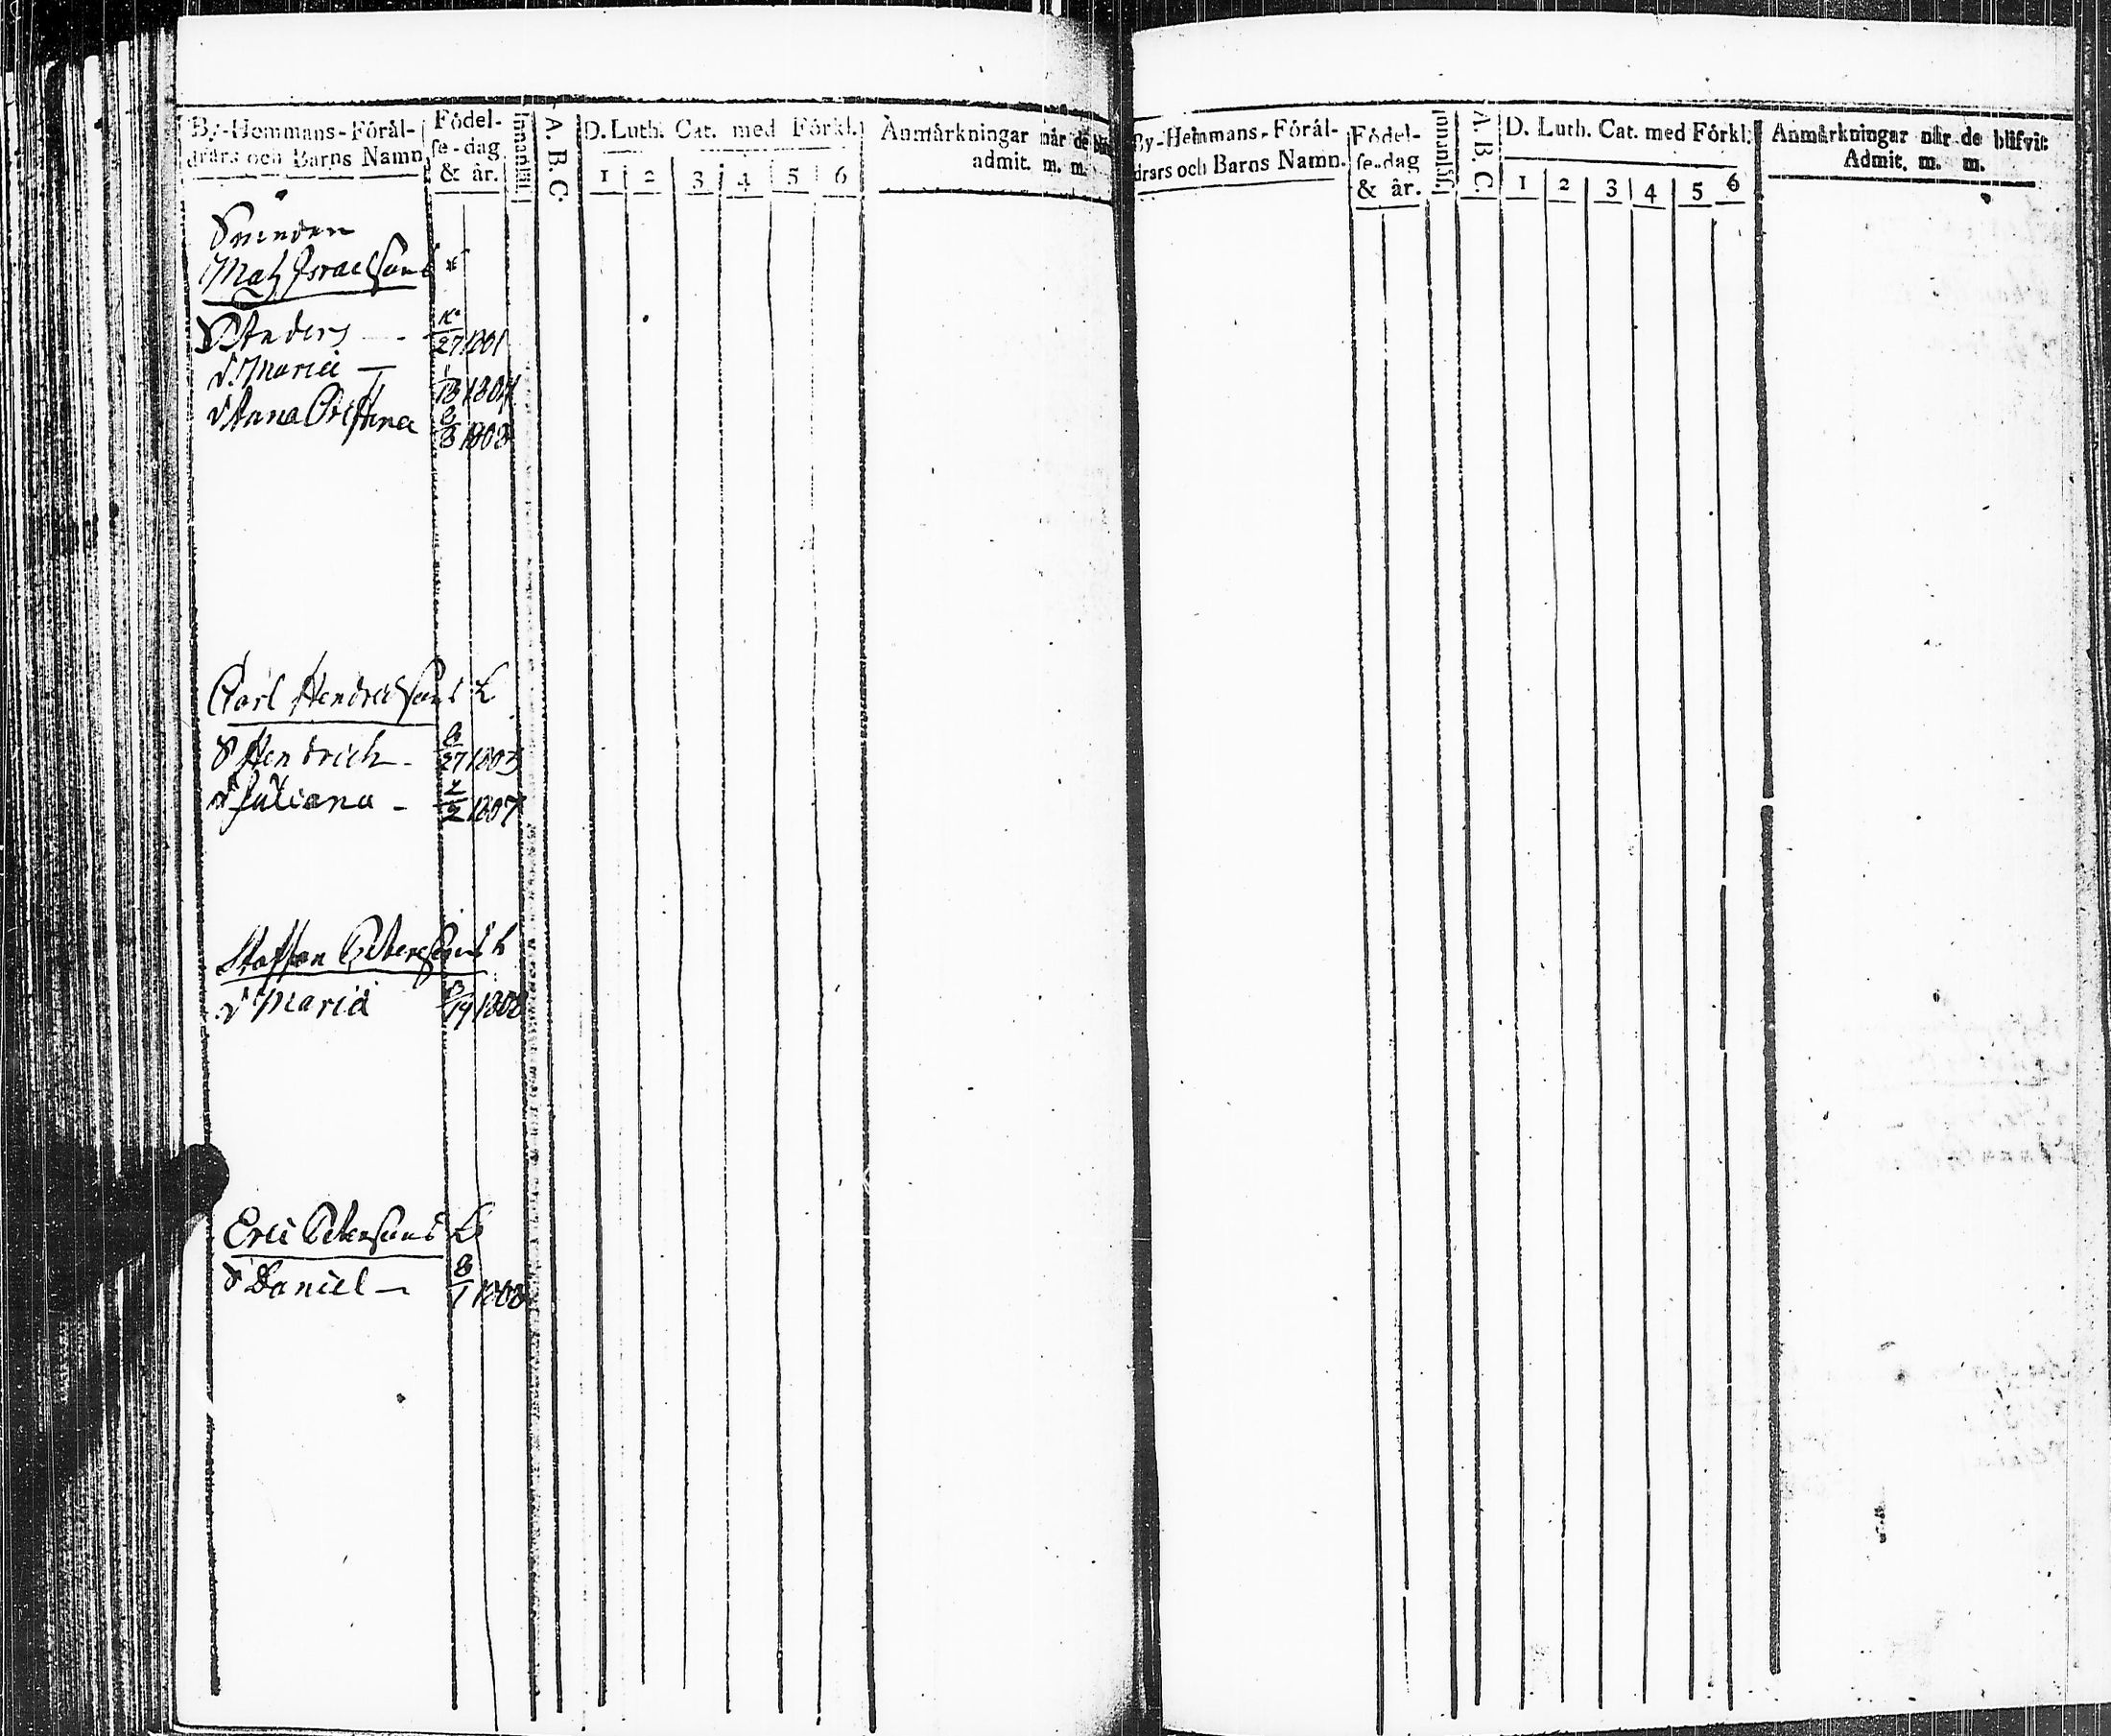 By-Hemmans-Förål-
drars och Barns Namn
Födel-
se-dag
& år.
A. B. C.
D. Luth. Cat. med Förkl.
1 2 3 4 5 6
Anmårkningar når de
admit. m. m.
Mats Israelsons
S Anders 27 1801
d Maria 13 1804
d Anna Cristina 8 1808
Carl Hendricsons
S Hendrich 27 1803
d Juliana 2 1807
Staffan
d Maria 19 1808
Eric Petersons
S Daniel 8 1 1808
By-Hemmans-Förål-
drars och Barns Namn.
Födel-
se-dag
& år.
A. B. C.
D. Luth. Cat. med Förkl.
1 2 3 4 5 6
Anmårkningar når de blifvit
Admit. m. m.